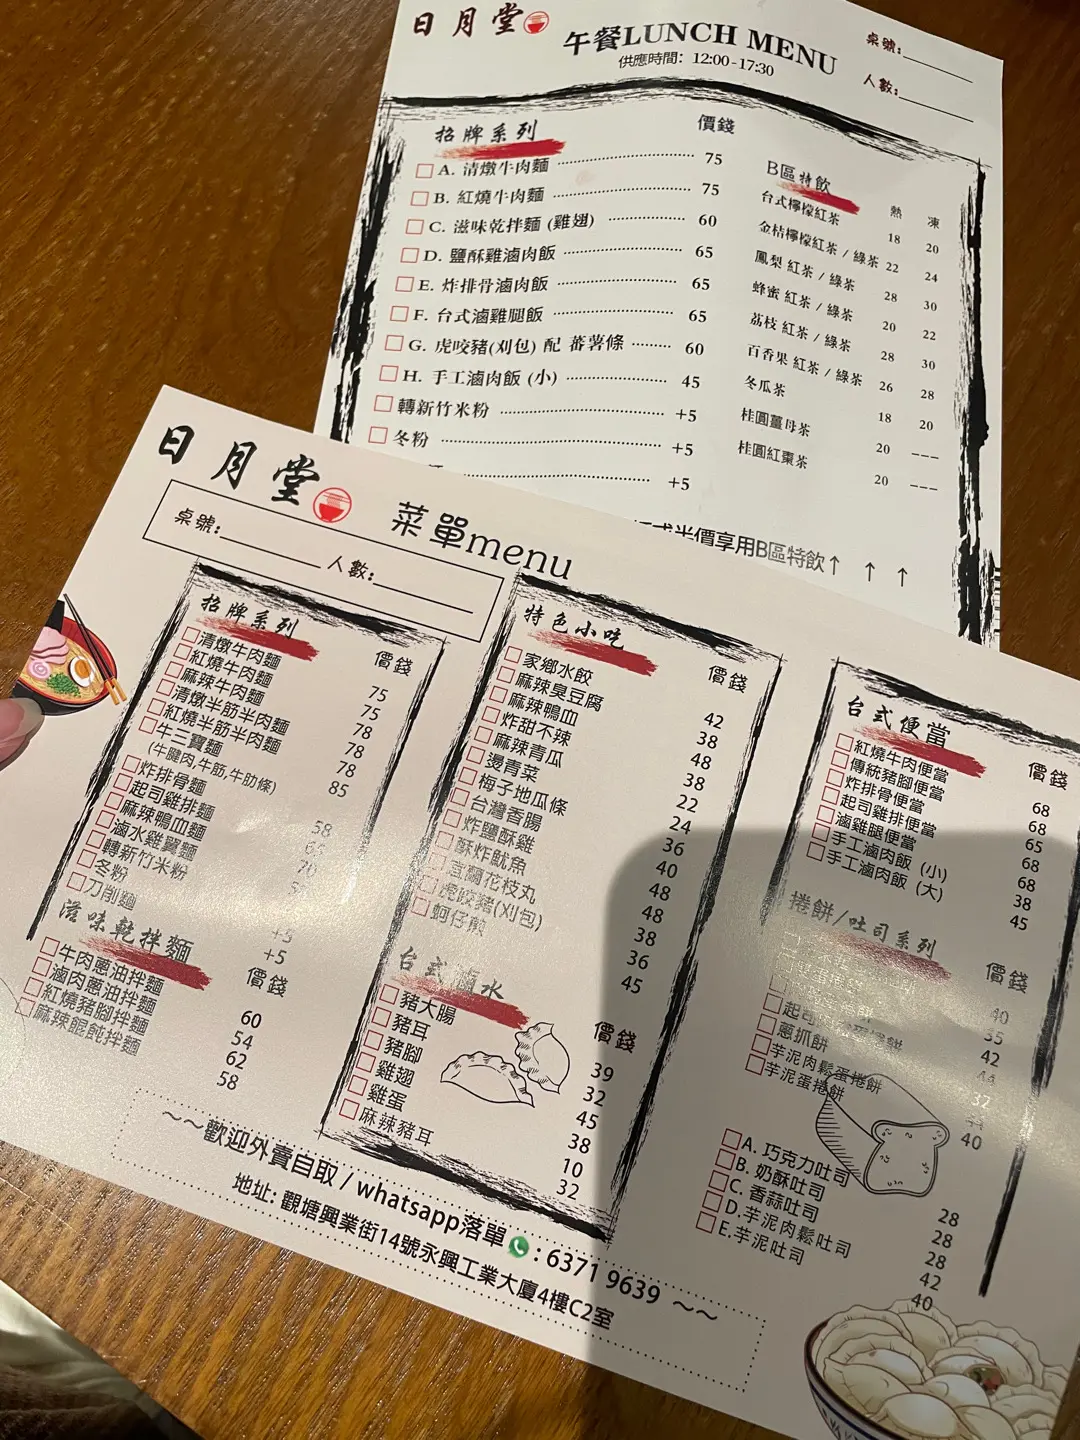 日月堂
午餐LUNCH MENU
供應時間: 12:00-17:30
桌號:
人數:
招牌系列 價錢
A. 清燉牛肉麵 75
B. 紅燒牛肉麵 75
C. 滋味乾拌麵 (雞翅) 60
D. 鹽酥雞滷肉飯 65
E. 炸排骨滷肉飯 65
F. 台式滷雞腿飯 65
G. 虎咬豬(刈包) 配 蕃薯條 60
H. 手工滷肉飯 (小) 45
轉新竹米粉 +5
冬粉 +5
+5
B區特飲
熱 凍
台式檸檬紅茶 18 20
金桔檸檬紅茶 / 綠茶 22 24
鳳梨 紅茶 / 綠茶 28 30
蜂蜜 紅茶 / 綠茶 20 22
荔枝 紅茶 / 綠茶 28 30
百香果 紅茶 / 綠茶 26 28
冬瓜茶 18 20
桂圓薑母茶 20 ---
桂圓紅棗茶 20 ---
半價享用B區特飲↑ ↑ ↑
日月堂
菜單menu
桌號: 人數:
招牌系列 價錢
清燉牛肉麵 75
紅燒牛肉麵 75
麻辣牛肉麵 78
清燉半筋半肉麵 78
紅燒半筋半肉麵 78
牛三寶麵 85
(牛腱肉,牛筋,牛肋條)
炸排骨麵 58
起司雞排麵
麻辣鴨血麵 70
滷水雞翼麵
轉新竹米粉 +5
冬粉 +5
刀削麵
滋味乾拌麵 價錢
牛肉蔥油拌麵 60
滷肉蔥油拌麵 54
紅燒豬腳拌麵 62
麻辣餛飩拌麵 58
特色小吃 價錢
家鄉水餃 42
麻辣臭豆腐 38
麻辣鴨血 48
炸甜不辣 38
麻辣青瓜 22
燙青菜 24
梅子地瓜條 36
台灣香腸 40
炸鹽酥雞 48
酥炸魷魚 48
宜蘭花枝丸 38
虎咬豬(刈包) 36
蚵仔煎 45
台式滷水 價錢
豬大腸 39
豬耳 32
豬腳 45
雞翅 38
雞蛋 10
麻辣豬耳 32
台式便當 價錢
紅燒牛肉便當 68
傳統豬腳便當 68
炸排骨便當 65
起司雞排便當 68
滷雞腿便當 68
手工滷肉飯 (小) 38
手工滷肉飯 (大) 45
捲餅/吐司系列 價錢
40
35
起司 捲餅 42
蔥抓餅
芋泥肉鬆蛋捲餅
芋泥蛋捲餅 40
A. 巧克力吐司 28
B. 奶酥吐司 28
C. 香蒜吐司 28
D.芋泥肉鬆吐司 42
E.芋泥吐司 40
～～歡迎外賣自取 / whatsapp落單 : 6371 9639 ～～
地址: 觀塘興業街14號永興工業大廈4樓C2室